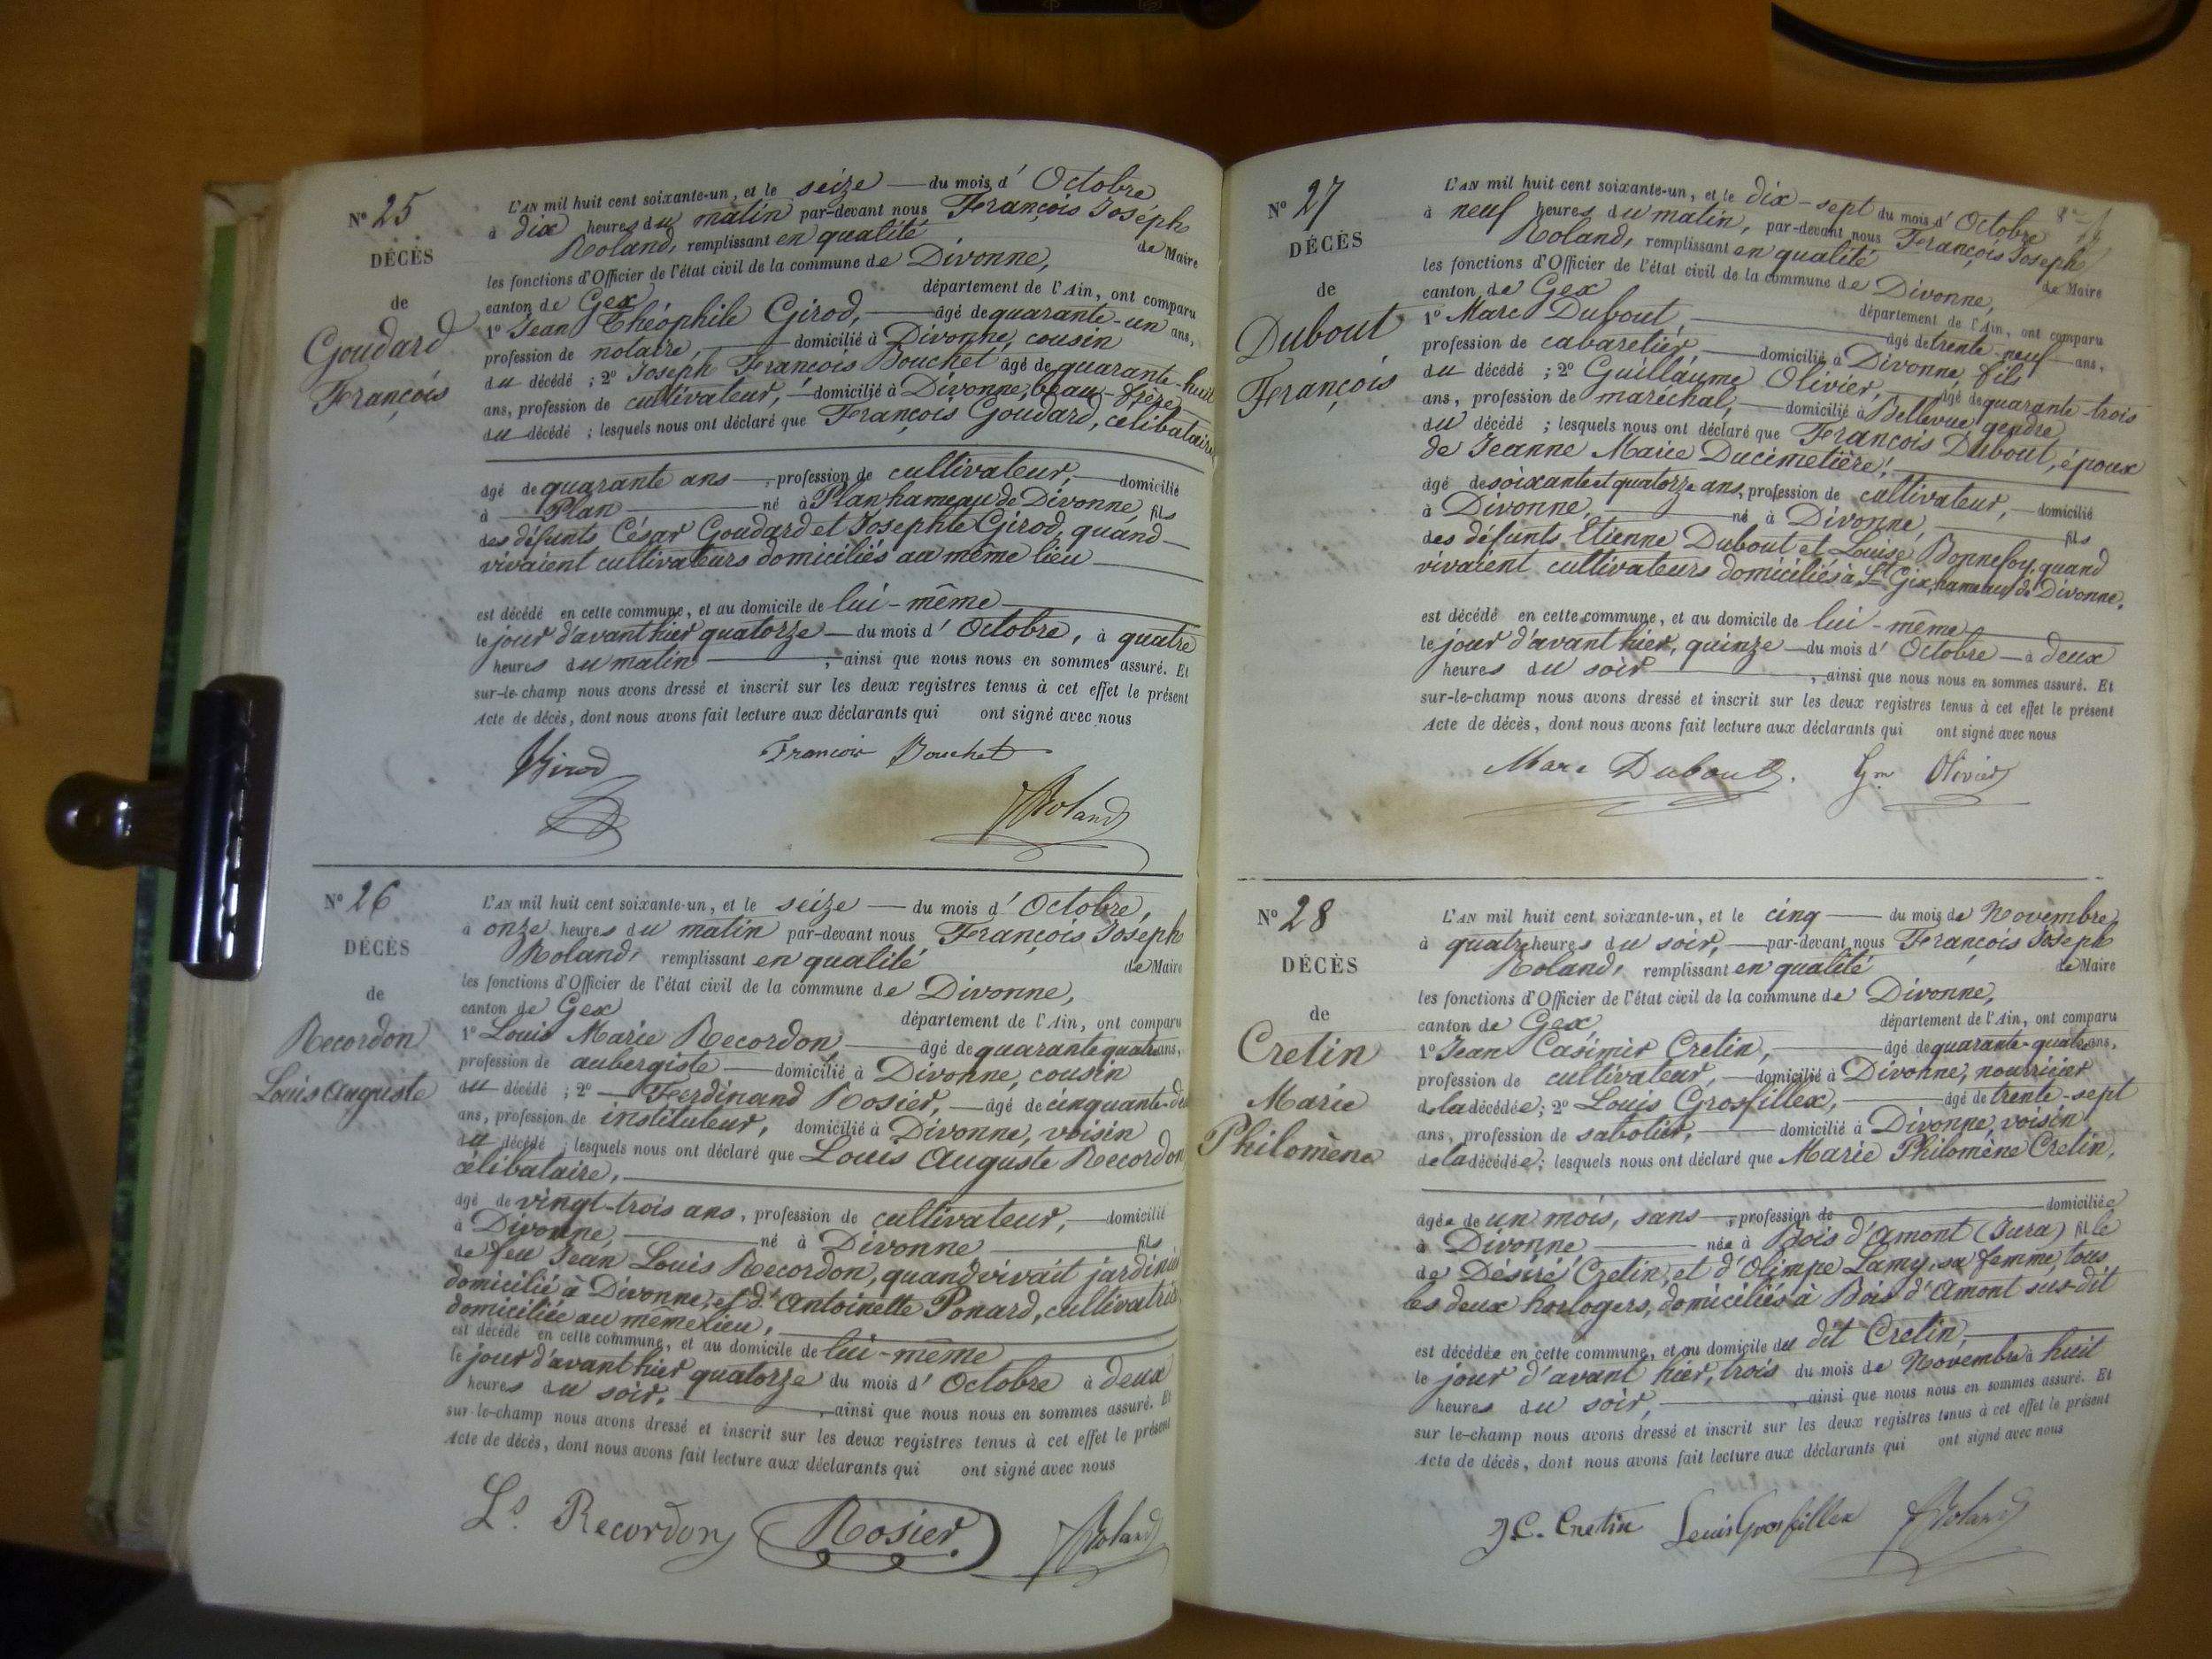 N° 25
DÉCÈS
de
Goudard
François
L'AN mil huit cent soixante-un, et le seize du mois d' Octobre
à dix heures du matin par-devant nous François Joseph
Roland, remplissant en qualité de Maire
les fonctions d'Officier de l'état civil de la commune de Divonne,
canton de Gex département de l'Ain, ont comparu
1° Jean Théophile Girod, âgé de quarante-un ans,
profession de notaire, domicilié à Divonne, cousin
du décédé ; 2° Joseph François Bouchet âgé de quarante-huit
ans, profession de cultivateur, domicilié à Divonne, beau-frère
du décédé ; lesquels nous ont déclaré que François Goudard, célibataire
âgé de quarante ans, profession de cultivateur, domicilié
à Plan né à Plan hameau de Divonne, fils
des défunts César Goudard et Josephte Girod, quand
vivaient cultivateurs domiciliés au même lieu
est décédé en cette commune, et au domicile de lui-même
le jour d'avant hier quatorze du mois d' Octobre, à quatre
heures du matin, ainsi que nous nous en sommes assuré. Et
sur-le-champ nous avons dressé et inscrit sur les deux registres tenus à cet effet le présent
Acte de décès, dont nous avons fait lecture aux déclarants qui ont signé avec nous
Girod François Bouchet
Roland
N° 26
DÉCÈS
de
Recordon
Louis Auguste
L'AN mil huit cent soixante-un, et le seize du mois d' Octobre,
à onze heures du matin par-devant nous François Joseph
Roland, remplissant en qualité de Maire
les fonctions d'Officier de l'état civil de la commune de Divonne,
canton de Gex département de l'Ain, ont comparu
1° Louis Marie Recordon âgé de quarante quatre ans,
profession de aubergiste domicilié à Divonne, cousin
du décédé ; 2° Ferdinand Rosier, âgé de cinquante-deux
ans, profession de instituteur, domicilié à Divonne, voisin
du décédé ; lesquels nous ont déclaré que Louis Auguste Recordon
célibataire,
âgé de vingt-trois ans, profession de cultivateur, domicilié
à Divonne, né à Divonne fils
de feu Jean Louis Recordon, quand vivait jardinier
domicilié à Divonne, et d' Antoinette Ponard, cultivatrice
domiciliée au même lieu,
est décédé en cette commune, et au domicile de lui-même
le jour d'avant hier quatorze du mois d' Octobre à deux
heures du soir, ainsi que nous nous en sommes assuré. Et
sur-le-champ nous avons dressé et inscrit sur les deux registres tenus à cet effet le présent
Acte de décès, dont nous avons fait lecture aux déclarants qui ont signé avec nous
Ls. Recordon Rosier. Roland
N° 27
DÉCÈS
de
Dubout
François
L'AN mil huit cent soixante-un, et le dix-sept du mois d' Octobre
à neuf heures du matin, par-devant nous François Joseph
Roland, remplissant en qualité de Maire
les fonctions d'Officier de l'état civil de la commune de Divonne,
canton de Gex département de l'Ain, ont comparu
1° Marc Dubout, âgé de trente-neuf ans,
profession de cabaretier, domicilié à Divonne, fils
du décédé ; 2° Guillaume Olivier, âgé de quarante-trois
ans, profession de maréchal, domicilié à Bellevue, gendre
du décédé ; lesquels nous ont déclaré que François Dubout, époux
de Jeanne Marie Ducimetière,
âgé de soixante et quatorze ans, profession de cultivateur, domicilié
à Divonne, né à Divonne, fils
des défunts Etienne Dubout et Louise Bonnefoy, quand
vivaient cultivateurs domiciliés à St Gix, hameau de Divonne.
est décédé en cette commune, et au domicile de lui-même
le jour d'avant hier, quinze du mois d' Octobre à deux
heures du soir, ainsi que nous nous en sommes assuré. Et
sur-le-champ nous avons dressé et inscrit sur les deux registres tenus à cet effet le présent
Acte de décès, dont nous avons fait lecture aux déclarants qui ont signé avec nous
Marc Dubout. Gm Olivier
N° 28
DÉCÈS
de
Cretin
Marie
Philomène
L'AN mil huit cent soixante-un, et le cinq du mois de Novembre
à quatre heures du soir, par-devant nous François Joseph
Roland, remplissant en qualité de Maire
les fonctions d'Officier de l'état civil de la commune de Divonne,
canton de Gex, département de l'Ain, ont comparu
1° Jean Casimir Cretin, âgé de quarante-quatre ans,
profession de cultivateur, domicilié à Divonne, nourricier
de la décédée ; 2° Louis Grosfillex, âgé de trente-sept
ans, profession de sabotier, domicilié à Divonne, voisin
de la décédée ; lesquels nous ont déclaré que Marie Philomène Cretin,
âgée de un mois, sans profession de domiciliée
à Divonne née à Bois d'Amont (Jura) fille
de Désiré Cretin, et d'Olimpe Lamy, sa femme, tous
les deux horlogers, domiciliés à Bois d'Amont sus-dit
est décédée en cette commune, et au domicile du dit Cretin,
le jour d'avant hier, trois du mois de Novembre à huit
heures du soir, ainsi que nous nous en sommes assuré. Et
sur le-champ nous avons dressé et inscrit sur les deux registres tenus à cet effet le présent
Acte de décès, dont nous avons fait lecture aux déclarants qui ont signé avec nous
J. C. Cretin Louis Grosfillex Roland